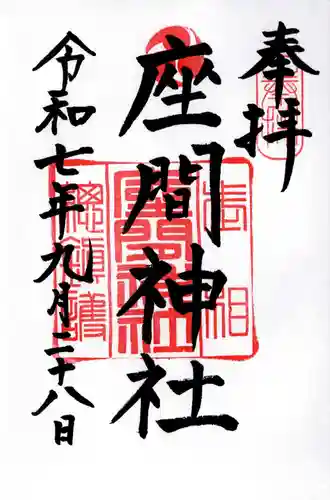 奉拝
座間神社
令和七年九月二十八日